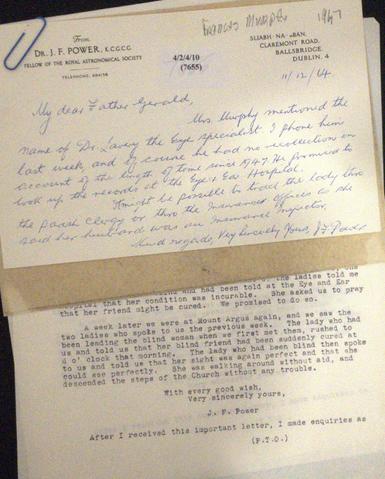 Frances Murphy 1947
From
DR. J. F. POWER, K.C.G.C.G
FELLOW OF THE ROYAL ASTRONOMICAL SOCIETY
TELEPHONE
4/2/4/10
(7655)
SLIABH NA mBAN,
CLAREMONT ROAD,
BALLSBRIDGE,
DUBLIN, 4
11/12/64.
My dear Father Gerald,
Mrs. Murphy mentioned the
name of Dr. Lavery the Eye specialist. I phone him
last week, and of course he had no recollection on
account of the length of time since 1947. He promised to
look up the records at the Eye & Ear Hospital.
It might be possible to trace the lady thro
the Parish Clergy or thro the Insurance offices as she
said her husband was an Insurance inspector.
Kind regards, Very sincerely Yours, J F Power
the ladies told me
who had been told at the Eye and Ear
hospital that her condition was incurable. She asked us to pray
that her friend might be cured. We promised to do so.
A week later we were at Mount Argus again, and we saw the
two ladies who spoke to us the previous week. The lady who had
been leading the blind woman when we first met them, rushed to
us and told us that her blind friend had been suddenly cured at
o' clock that morning. The lady who had been blind then spoke
to us and told us that her sight was again perfect and that she
could see perfectly. She was walking around without aid, and
descended the steps of the Church without any trouble.
With every good wish,
Very sincerely yours,
J. F. Power
After I received this important letter, I made enquiries as
(P.T.O.)